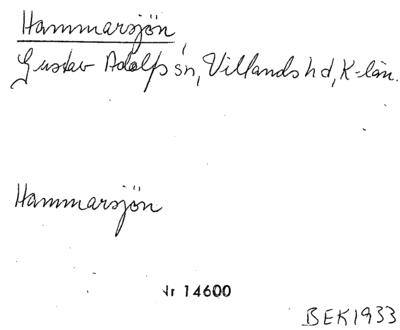 Hammarsjön,
Gustav Adolfs sn, Villands hd, K-län.
Hammarsjön
Nr 14600
BEK1933